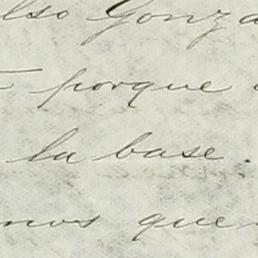 also Gonza
porque
la base.
mos que